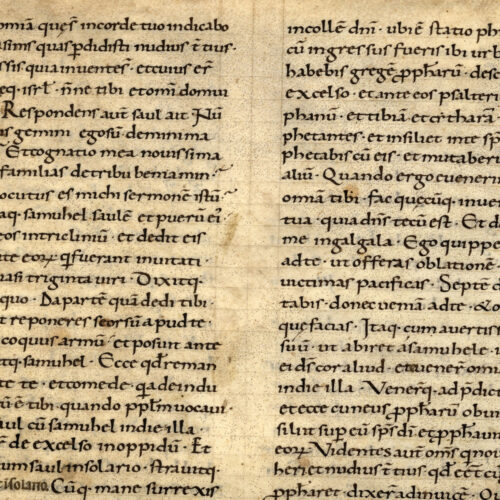 omnia quę sın incorde tuo indicabo
asinis quas pdidisti nudius tˉtius ·
ssis quia inventesˉ · etcuius erˉ
eq · isrl · nˉne tibi et omˉi domui
Respondens autˉ saul ait Nuˉ
us gemini egosuˉ · deminima
· Et cognatio mea novissima
familias detribu beniamin ·
ocutus es michi sermonēˉ istuˉ ·
aq · samuhel saulēˉ et pueruˉ ei ·
eos intricliniuˉ · et dedit eis
te eorꝝ q̄ fuerant invitati ·
uasi triginta viri · Dixitq ·
quo · Da parteˉ quaˉ dedi tibi ·
t reponeres seorsuˉ apud te ·
coquus armuˉ · et posuit ante
tq · samuhel · Ecce qdˉ reman
te te · et comede · qa deindu
uˉ eˉ tibi · quando pplˉm vocavi ·
aul cuˉ samuhel indie illa ·
rˉ de excelso inoppiduˉ · Et
cum saul insolario · stravitq ·
insolario · Cuˉq · mane surrexis
incolleˉ dnˉi · ubi eˉ statio ph
cuˉ ingressus fueris ibi urb
habebis gregeˉ ꝓpharuˉ · desc
excelso · et ante eos psalteri
phanuˉ · et tibiaˉ · et cytharaˉ
phetantes · et insiliet inte sp
phetabis cuˉ eis · et mutaberi
aliuˉ · Quando ergo evenerin
omˉia tibi · fac quecuˉq · inven
tua · quia dnˉs tecuˉ est · Et d
me ingalgala · Ego quippe
adte · ut offeras oblationeˉ
victimas pacificas · Septeˉ d
tabis · donec veniaˉ adte · &o
que facias · Itaq · cum avertiss
suuˉ · ut abiret asamuhele · i
ei dsˉ cor aliud · et venerˉ omˉ
indie illa · Venerˉq · ad pˉdict
et ecce cuneus ꝓpharuˉ obvi
siluit sup euˉ spˉs dˉi · et ꝓphauˉ
eorꝝ · Videntes autˉ omˉs q nov
heri et nudius tˉtius · qdˉ eētˉ cu
ꝓphareˉ · dixerˉ adinviceˉ · Q